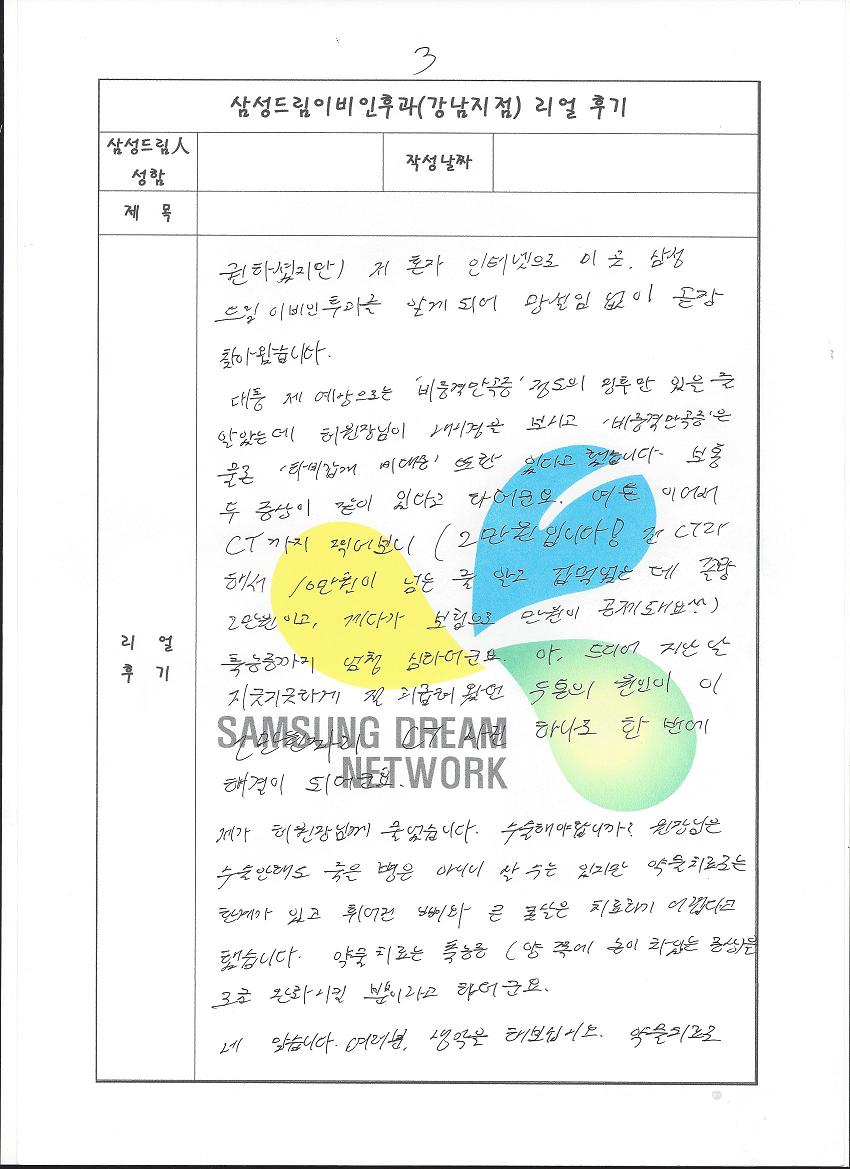 3
삼성드림이비인후과(강남지점) 리얼 후기
삼성드림人
성함
작성날짜
제 목
리 얼
후 기
권하셨지만) 저 혼자 인터넷으로 이 곳, 삼성
드림 이비인후과를 알게 되어 망설임 없이 곧장
찾아왔습니다.
대통 제 예상으로는 '비중격만곡증' 정도의 만 있을 줄
알았는데 허원장님이 내시경을 보시고 '비중격만곡증'은
물론 '하비갑개 비대증' 또한 있다고 했습니다. 보통
두 증상이 같이 있다고 하더군요. 여튼 이어서
CT까지 찍어보니 (2만원입니다! 전 CT라
해서 10만원이 넘는 줄 알고 겁먹었는데 졸랑
2만원이고, 게다가 보험으로 만원이 공제돼요^^)
축농증까지 엄청 심하더군요. 아, 드디어 지난 날
지긋지긋하게 절 괴롭혀 왔던 두통의 원인이 이
2만원짜리 CT 사진 하나로 한 번에
해결이 되더군요.
SAMSUNG DREAM
NETWORK
제가 허원장님께 물었습니다. 수술해야합니까? 원장님은
수술안해도 죽은 병은 아니니 살 수는 있지만 약물치료로는
한계가 있고 휘어진 뼈와 큰 콧살은 치료하기 어렵다고
했습니다. 약물치료는 축농증 (양 쪽에 농이 차있는 증상)을
조금 완화시킬 뿐이라고 하더군요.
네 맞습니다. 여러분, 생각을 해보십시오. 약물치료로